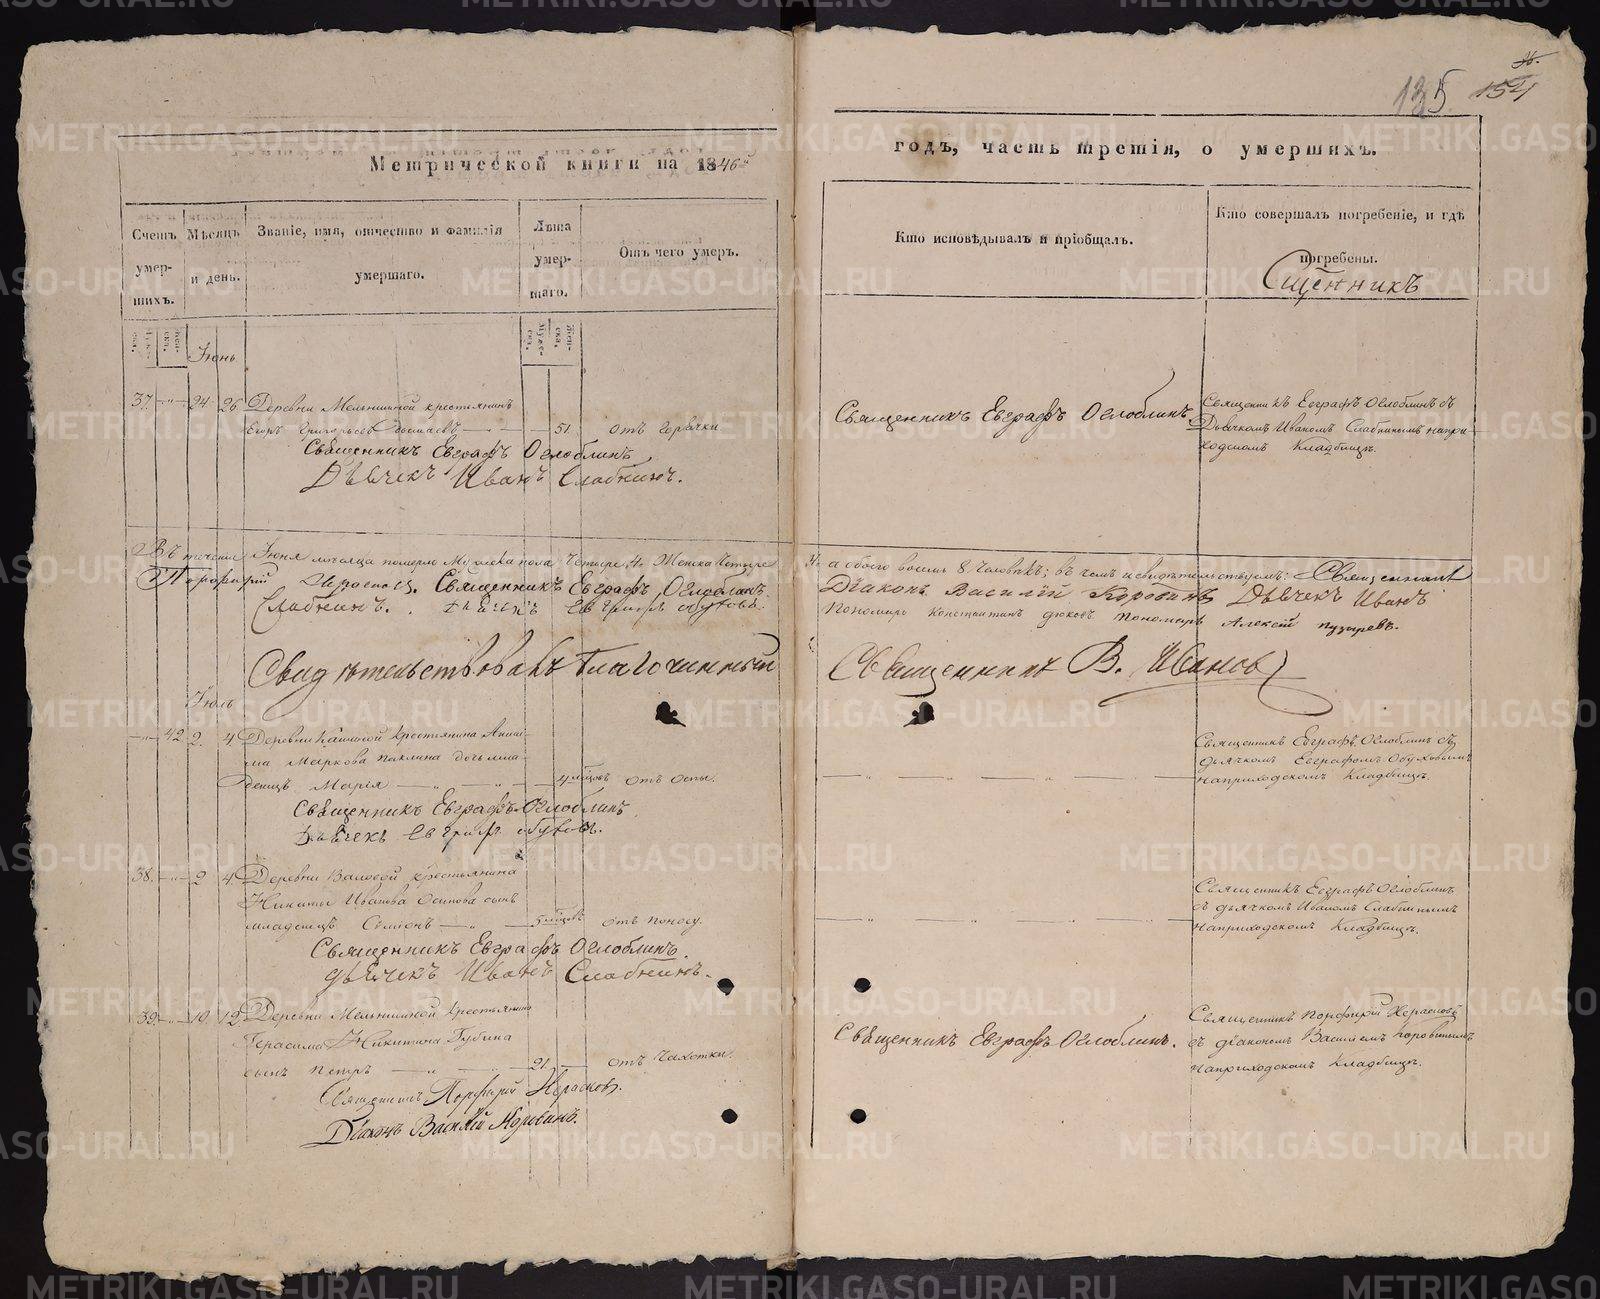 135 154
Метрической книги на 1846й
годъ, часть третія, о умершихъ.
Счетъ умер-шихъ.
Мѣсяцъ и день.
Званіе, имя, отчество и фамилія умершаго.
Лѣта умер-шаго.
Отъ чего умеръ.
Кто исповѣдывалъ и пріобщалъ.
Кто совершалъ погребеніе, и гдѣ погребены.
Іюнь
37. 24 26 Деревни Мельниной крестьянинъ
Егоръ Григорьевъ 51 отъ горячки
Священникъ Евграфъ Оглоблинъ
Дьячекъ Иванъ Слабнинъ.
Священникъ Евграфъ Оглоблинъ
Священникъ Евграфъ Оглоблинъ съ
Дьячкомъ Иваномъ Слабнинымъ на при-
ходскомъ кладбищѣ.
Въ теченіе Іюня мѣсяца померло Мужеска пола четыре, 4. Женска четыре
4. а обоего восемь 8 человѣкъ; въ чемъ и свидѣтельствуемъ: Священникъ
Порфирій Священникъ Евграфъ Оглоблинъ.
Діаконъ Василій Коровинъ Дьячекъ Иванъ
Слабнинъ. Дьячекъ Евграфъ Обуховъ.
Пономарь Константинъ Пономарь Алексѣй Пузыревъ.
Свидѣтельствовалъ Благочинный
Священникъ В. Ивановъ
Іюль
42 2. 4 Деревни крестьянина
Маркова Паклина дочь мла-
денецъ Марія 4 мѣсяцовъ отъ оспы.
Священникъ Евграфъ Оглоблинъ
Дьячекъ Евграфъ Обуховъ.
Священникъ Евграфъ Оглоблинъ съ
дьячкомъ Евграфомъ Обуховымъ
на приходскомъ кладбищѣ.
38. 2 4 Деревни крестьянина
Никиты Иванова Осипова сынъ
младенецъ 5 мѣсяцовъ отъ поносу.
Священникъ Евграфъ Оглоблинъ.
дьячекъ Иванъ Слабнинъ.
Священникъ Евграфъ Оглоблинъ
съ дьячкомъ Иваномъ Слабнинымъ
на приходскомъ кладбищѣ.
39. 10 12 Деревни Мельниной крестьянина
Герасима Никитина Губина
сынъ Петръ 21. отъ чахотки.
Священникъ Порфирій
Діаконъ Василій Коровинъ.
Священникъ Евграфъ Оглоблинъ.
Священникъ Порфирій
съ діакономъ Василіемъ Коровинымъ
на приходскомъ кладбищѣ.
METRIKI.GASO-URAL.RU